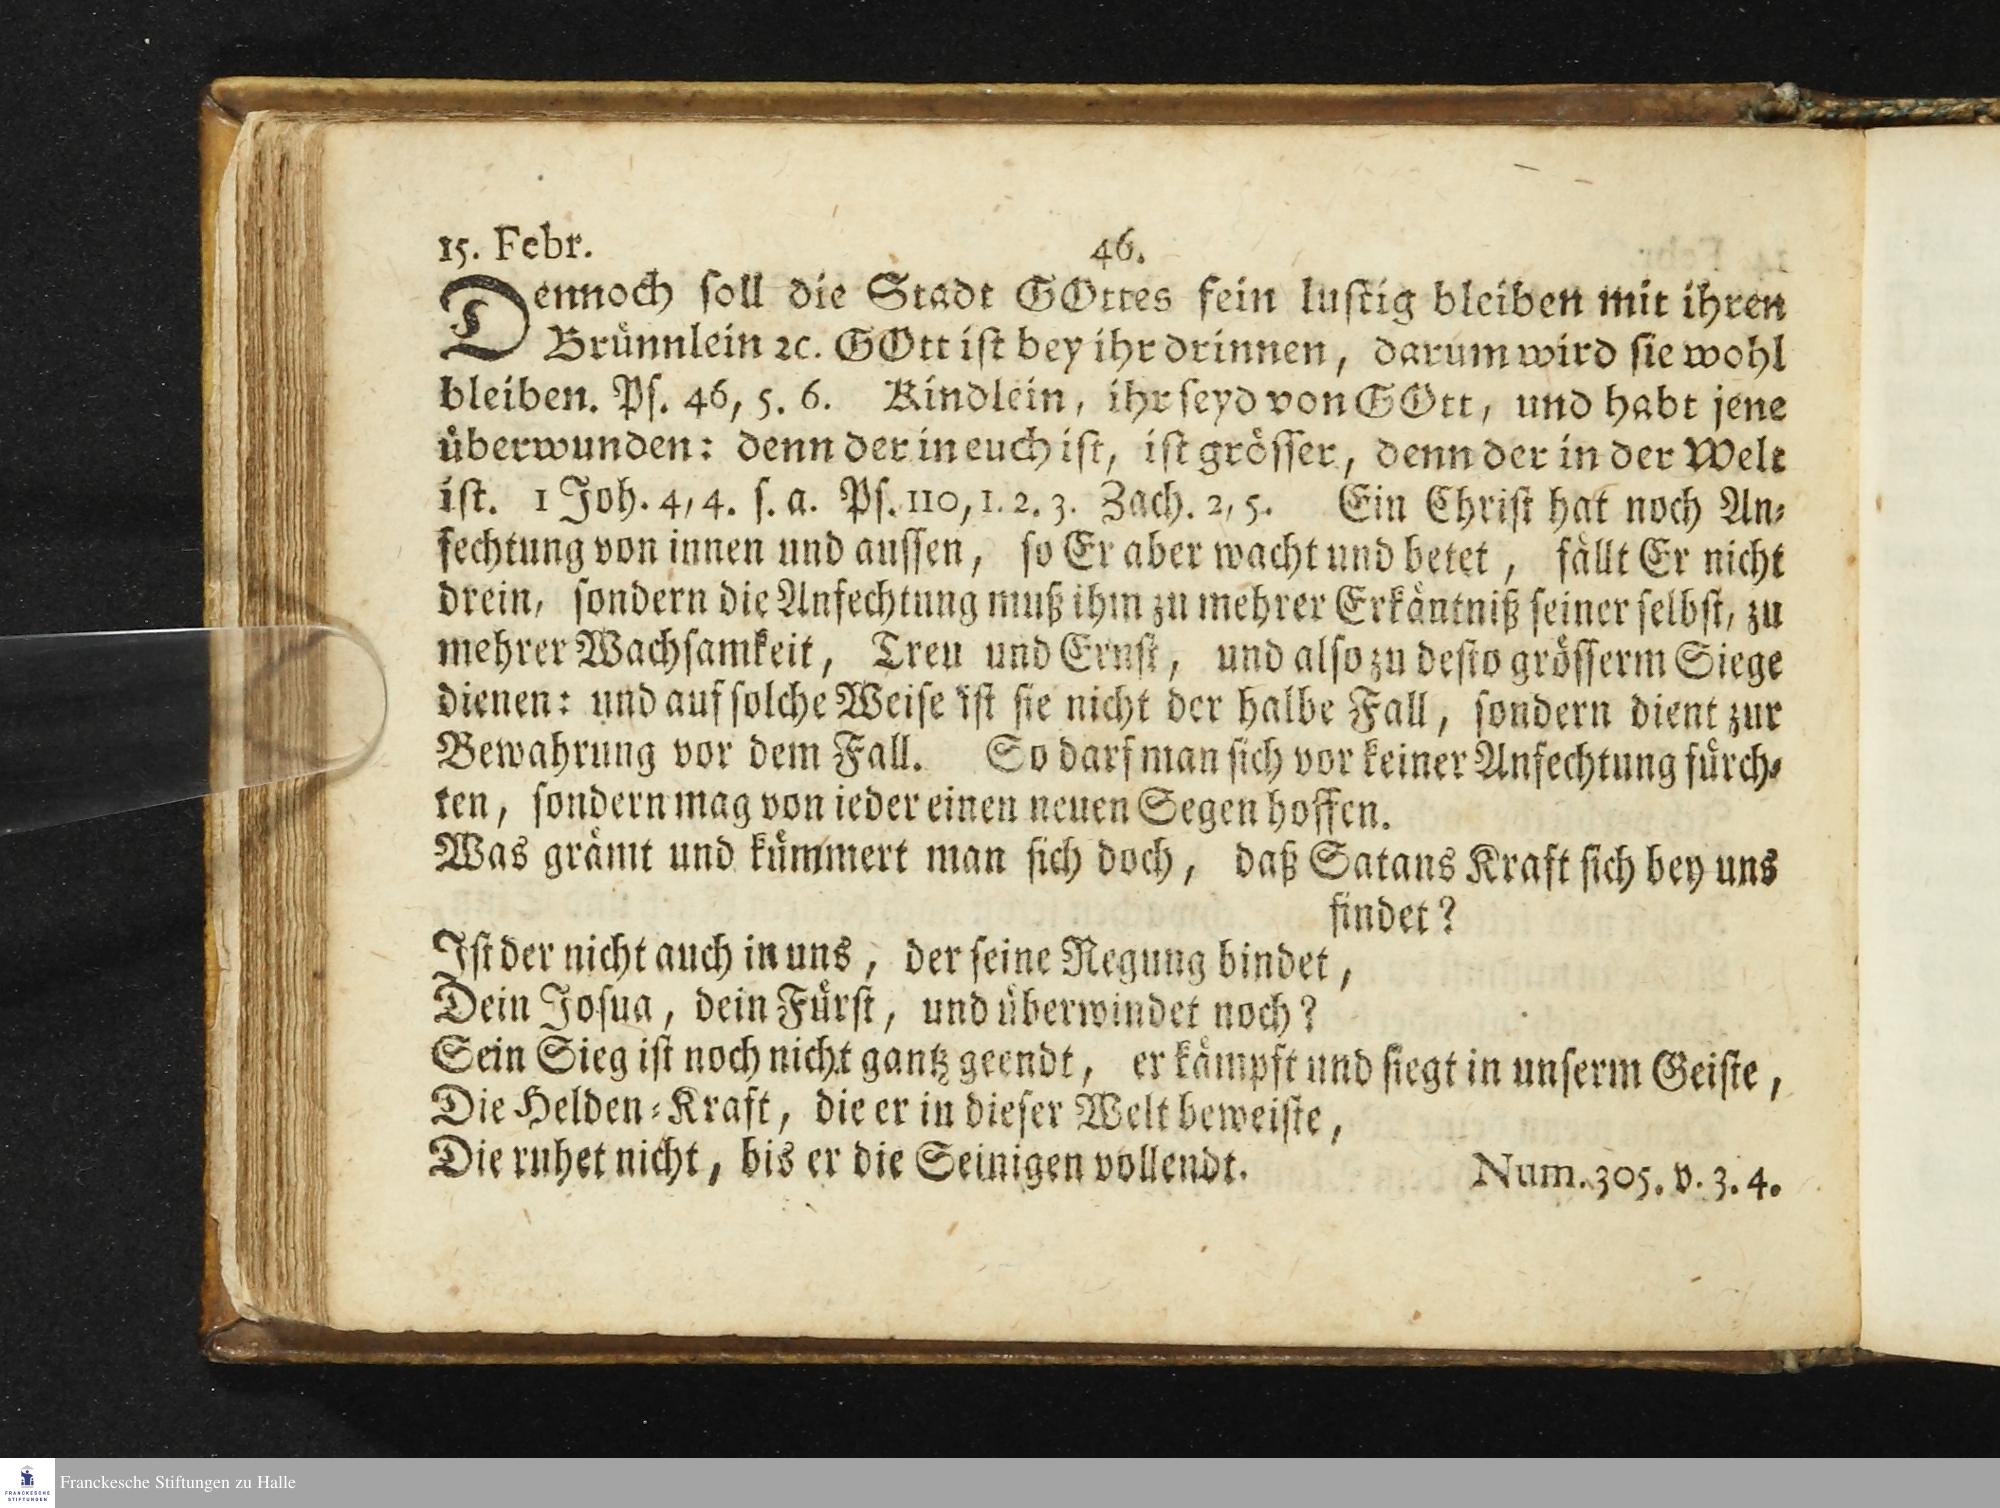 15. Febr.
46.
Dennoch soll die Stadt GOttes fein lustig bleiben mit ihren
Brünnlein ꝛc. GOtt ist bey ihr drinnen, darum wird sie wohl
bleiben. Ps. 46, 5. 6. Kindlein, ihr seyd von GOtt, und habt jene
überwunden: denn der in euch ist, ist grösser, denn der in der Welt
ist. 1 Joh. 4, 4. s. a. Ps. 110, 1. 2. 3. Zach. 2, 5. Ein Christ hat noch An-
fechtung von innen und aussen, so Er aber wacht und betet, fällt Er nicht
drein, sondern die Anfechtung muß ihm zu mehrer Erkäntniß seiner selbst, zu
mehrer Wachsamkeit, Treu und Ernst, und also zu desto grösserm Siege
dienen: und auf solche Weise ist sie nicht der halbe Fall, sondern dient zur
Bewahrung vor dem Fall. So darf man sich vor keiner Anfechtung fürch-
ten, sondern mag von ieder einen neuen Segen hoffen.
Was grämt und kümmert man sich doch, daß Satans Kraft sich bey uns
findet?
Ist der nicht auch in uns, der seine Regung bindet,
Dein Josua, dein Fürst, und überwindet noch?
Sein Sieg ist noch nicht gantz geendt, er kämpft und siegt in unserm Geiste,
Die Helden-Kraft, die er in dieser Welt beweiste,
Die ruhet nicht, bis er die Seinigen vollendt.
Num. 305. v. 3. 4.
FRANCKESCHE
STIFTUNGEN
Franckesche Stiftungen zu Halle